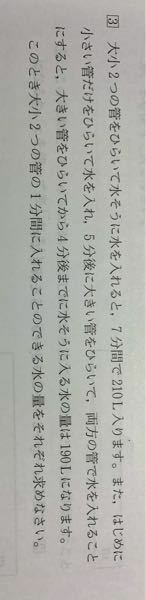 3 大小2つの管をひらいて水そうに水を入れると，7分間で210L入ります。また，はじめに
小さい管だけをひらいて水を入れ，5分後に大きい管をひらいて，両方の管で水を入れること
にすると，大きい管をひらいてから4分後までに水そうに入る水の量は190Lになります。
このとき大小2つの管の1分間に入れることのできる水の量をそれぞれ求めなさい。